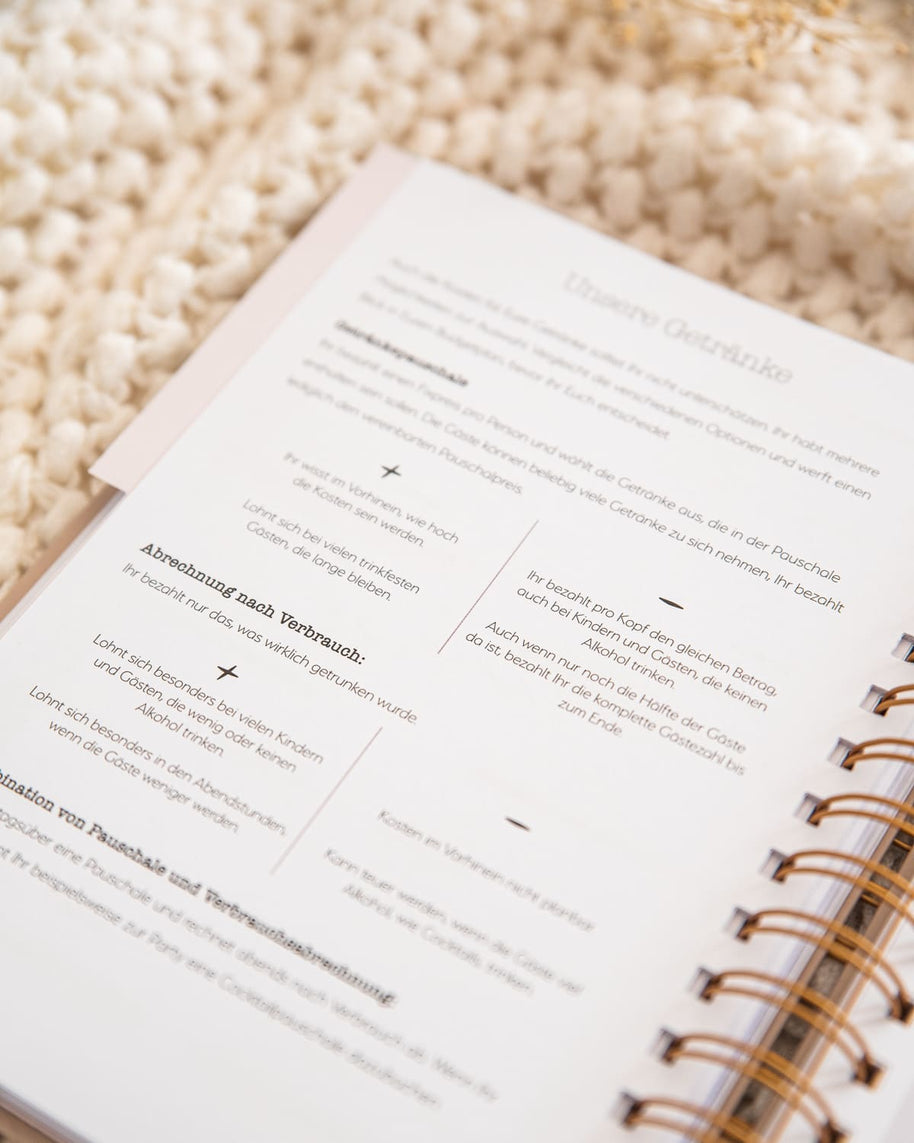 Unsere Getränke
Auch die Kosten für Eure Getränke solltet Ihr nicht unterschätzen. Ihr habt mehrere
Möglichkeiten zur Auswahl. Vergleicht die verschiedenen Optionen und werft einen
Blick in Euren Budgetplan, bevor Ihr Euch entscheidet.
Getränkepauschale
Ihr bezahlt einen Fixpreis pro Person und wählt die Getränke aus, die in der Pauschale
enthalten sein sollen. Die Gäste können beliebig viele Getränke zu sich nehmen, Ihr bezahlt
lediglich den vereinbarten Pauschalpreis.
+
Ihr wisst im Vorhinein, wie hoch
die Kosten sein werden.
Lohnt sich bei vielen trinkfesten
Gästen, die lange bleiben.
-
Ihr bezahlt pro Kopf den gleichen Betrag,
auch bei Kindern und Gästen, die keinen
Alkohol trinken.
Auch wenn nur noch die Hälfte der Gäste
da ist, bezahlt Ihr die komplette Gästezahl bis
zum Ende.
Abrechnung nach Verbrauch:
Ihr bezahlt nur das, was wirklich getrunken wurde
+
Lohnt sich besonders bei vielen Kindern
und Gästen, die wenig oder keinen
Alkohol trinken.
Lohnt sich besonders in den Abendstunden,
wenn die Gäste weniger werden.
-
Kosten im Vorhinein nicht planbar
Kann teuer werden, wenn die Gäste viel
Alkohol, wie Cocktails, trinken.
bination von Pauschale und Verbrauchsabrechnung
tagsüber eine Pauschale und rechnet abends nach Verbrauch ab. Wenn Ihr
Ihr beispielsweise zur Party eine Cocktailpauschale dazubuchen.